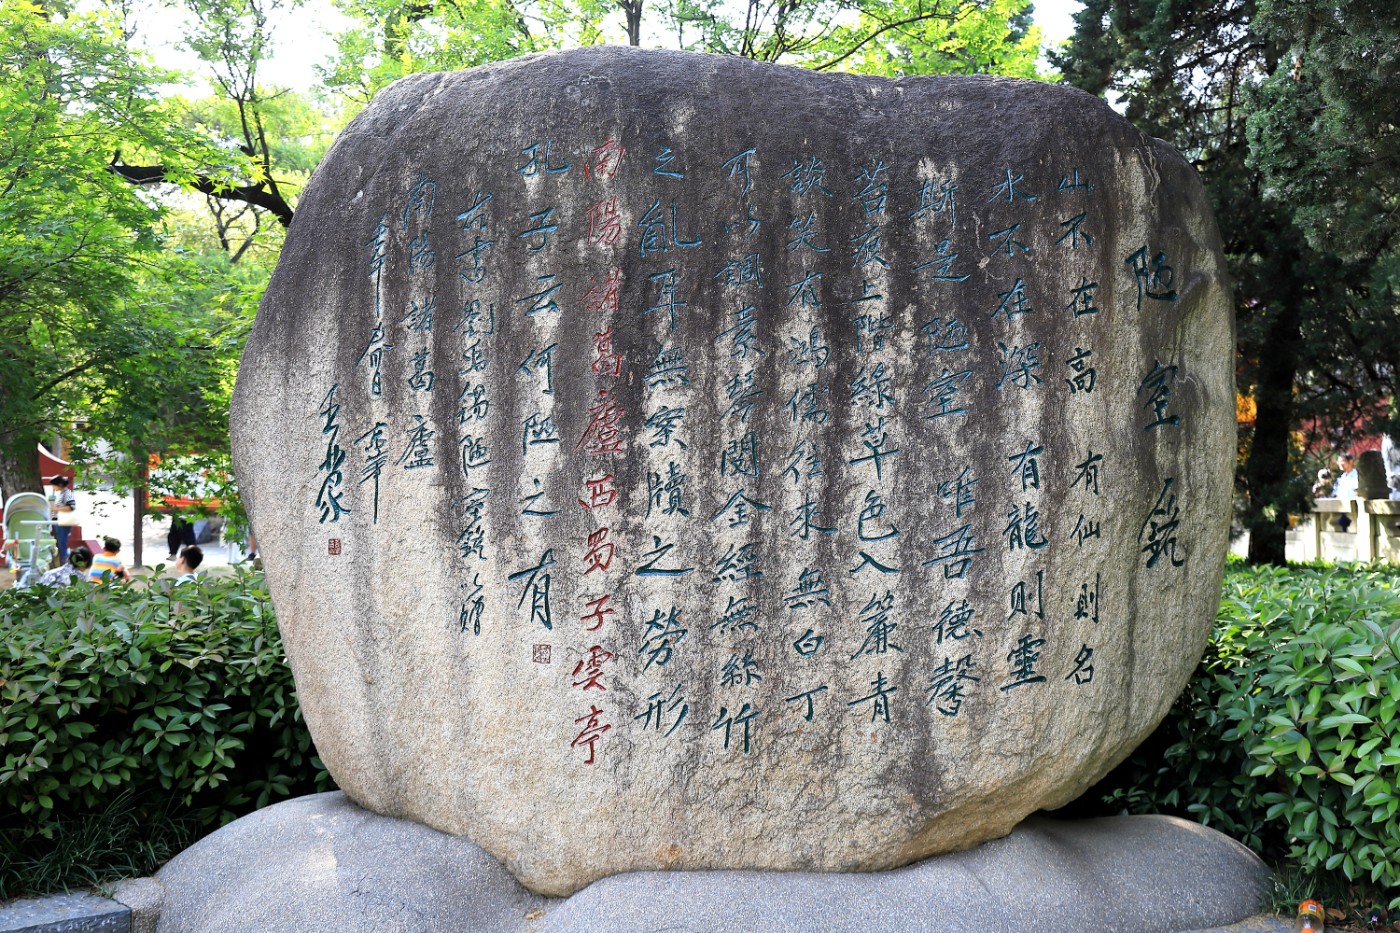 陋室銘
山不在高有仙則名
水不在深有龍則靈
斯是陋室唯吾德馨
苔痕上階綠草色入簾青
談笑有鴻儒往來無白丁
可以調素琴閱金經無絲竹
之亂耳無案牘之勞形
南陽諸葛廬西蜀子雲亭
孔子云何陋之有
右書劉禹錫陋室銘以贈
南陽諸葛廬